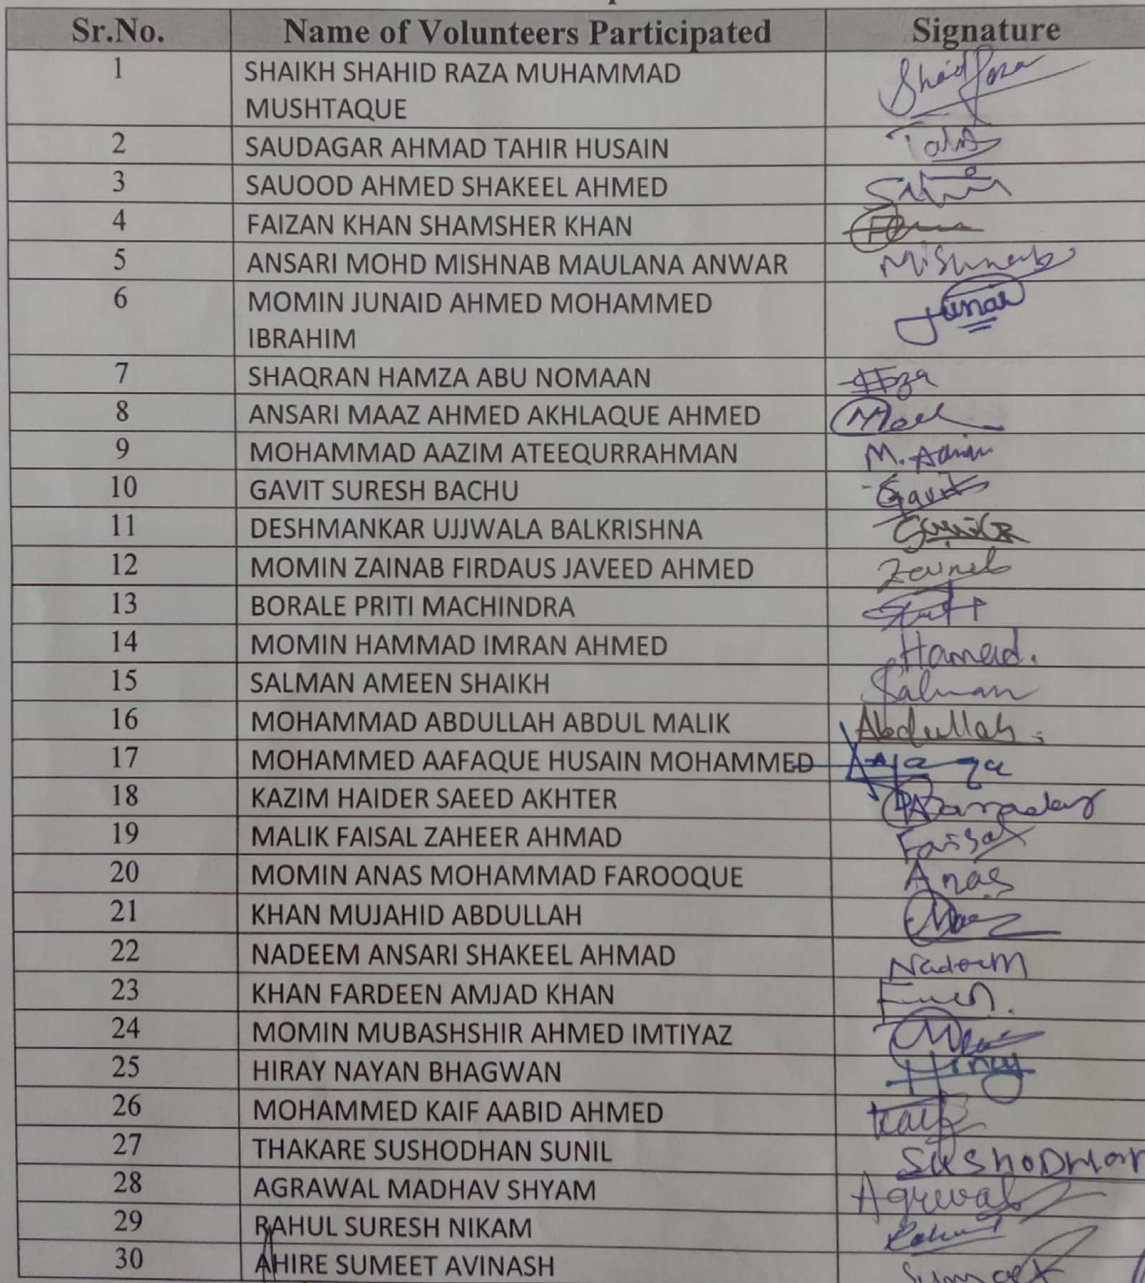 Sr.No. Name of Volunteers Participated Signature
1 SHAIKH SHAHID RAZA MUHAMMAD
MUSHTAQUE
2 SAUDAGAR AHMAD TAHIR HUSAIN
3 SAUOOD AHMED SHAKEEL AHMED
4 FAIZAN KHAN SHAMSHER KHAN
5 ANSARI MOHD MISHNAB MAULANA ANWAR Mishnab
6 MOMIN JUNAID AHMED MOHAMMED Junai
IBRAHIM
7 SHAQRAN HAMZA ABU NOMAAN
8 ANSARI MAAZ AHMED AKHLAQUE AHMED
9 MOHAMMAD AAZIM ATEEQURRAHMAN
10 GAVIT SURESH BACHU Gavit
11 DESHMANKAR UJJWALA BALKRISHNA
12 MOMIN ZAINAB FIRDAUS JAVEED AHMED Zainab
13 BORALE PRITI MACHINDRA
14 MOMIN HAMMAD IMRAN AHMED Hamad.
15 SALMAN AMEEN SHAIKH Salman
16 MOHAMMAD ABDULLAH ABDUL MALIK Abdullah
17 MOHAMMED AAFAQUE HUSAIN MOHAMMED
18 KAZIM HAIDER SAEED AKHTER
19 MALIK FAISAL ZAHEER AHMAD Faisal
20 MOMIN ANAS MOHAMMAD FAROOQUE Anas
21 KHAN MUJAHID ABDULLAH
22 NADEEM ANSARI SHAKEEL AHMAD Nadeem
23 KHAN FARDEEN AMJAD KHAN
24 MOMIN MUBASHSHIR AHMED IMTIYAZ
25 HIRAY NAYAN BHAGWAN Hiray
26 MOHAMMED KAIF AABID AHMED Kaif
27 THAKARE SUSHODHAN SUNIL SUSHODHAN
28 AGRAWAL MADHAV SHYAM Agrawal
29 RAHUL SURESH NIKAM Rahul
30 AHIRE SUMEET AVINASH Sumeet